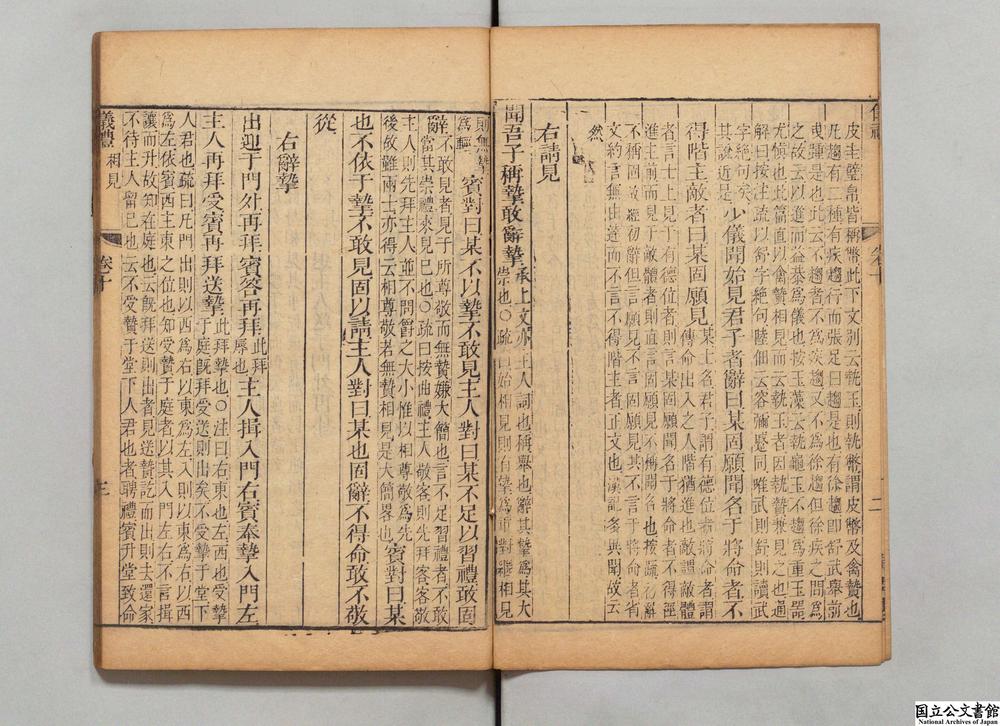 皮圭璧帛皆稱幣此下文別云執玉則執幣謂皮幣及禽贄也
凡趨有二種有疾趨行而張足曰趨是也有徐趨卽舒武舉前
曳踵是也此云不趨者不爲疾趨又不爲徐趨但徐疾之間爲
之故云以進而益恭爲儀也按玉藻云執龜玉不趨爲重玉器
尤愼也此篇直以執禽贄相見而云執玉者因執贄兼見之也通
解曰按注疏以舒字絕句陸佃云容彌蹙同唯武則舒則讀武
字絕句矣
其說近是 少儀開始見君子者辭曰某固願聞名于將命者不
得階主敵者曰某固願見
某主名君子謂有德位者將命者謂
傳命出入之人階猶進也敵謂敵體
者言士上見于有德位者則言某固願聞名于將命者不得徑
進主前而見于敵體者則直言固願見不稱聞名也按疏
不稱固
固願見其不言于將命者省
文約言無出
而不言不得階主者
右請見
聞吾子稱摯敢辭摯
承上文亦主人詞也稱舉也辭其摯爲其大
崇也〇疏曰始相見則有摯爲重對
相見
則無摯
爲輕 賓對曰某不以摯不敢見主人對曰某不足以習禮敢固
辭
不敢見者見于所尊敬而無贄嫌大簡也言不足習禮者不敢
當其崇禮來見已也〇疏曰按曲禮主人敬客則先拜客客敬
主人則先拜主人並不問爵之大小惟以相尊敬爲先
後故雖兩士亦得云相尊敬若無贄相見是大簡畧也 賓對曰某
也不依于摯不敢見固以請主人對曰某也固辭不得命敢不敬
從
右辭摯
出迎于門外再拜賓答再拜
此拜
辱也 主人揖入門右賓奉摯入門左
主人再拜受賓再拜送摯
此拜摯也〇注曰右東也左西也受摯
于庭旣拜受送則出矣不受摯于堂下
人君也疏曰凡門出則以西爲右以東爲左入則以東爲右以西
爲左依賓西主東之位也知受摯于庭者以其入門左右不言揖
讓而升故知在庭也云旣拜送則出者見送贄訖而出則去還家
不待主人留已也云不受贄于堂下人君也者聘禮賓升堂致命
儀禮
相見
卷十
三
二
国立公文書館
National Archives of Japan